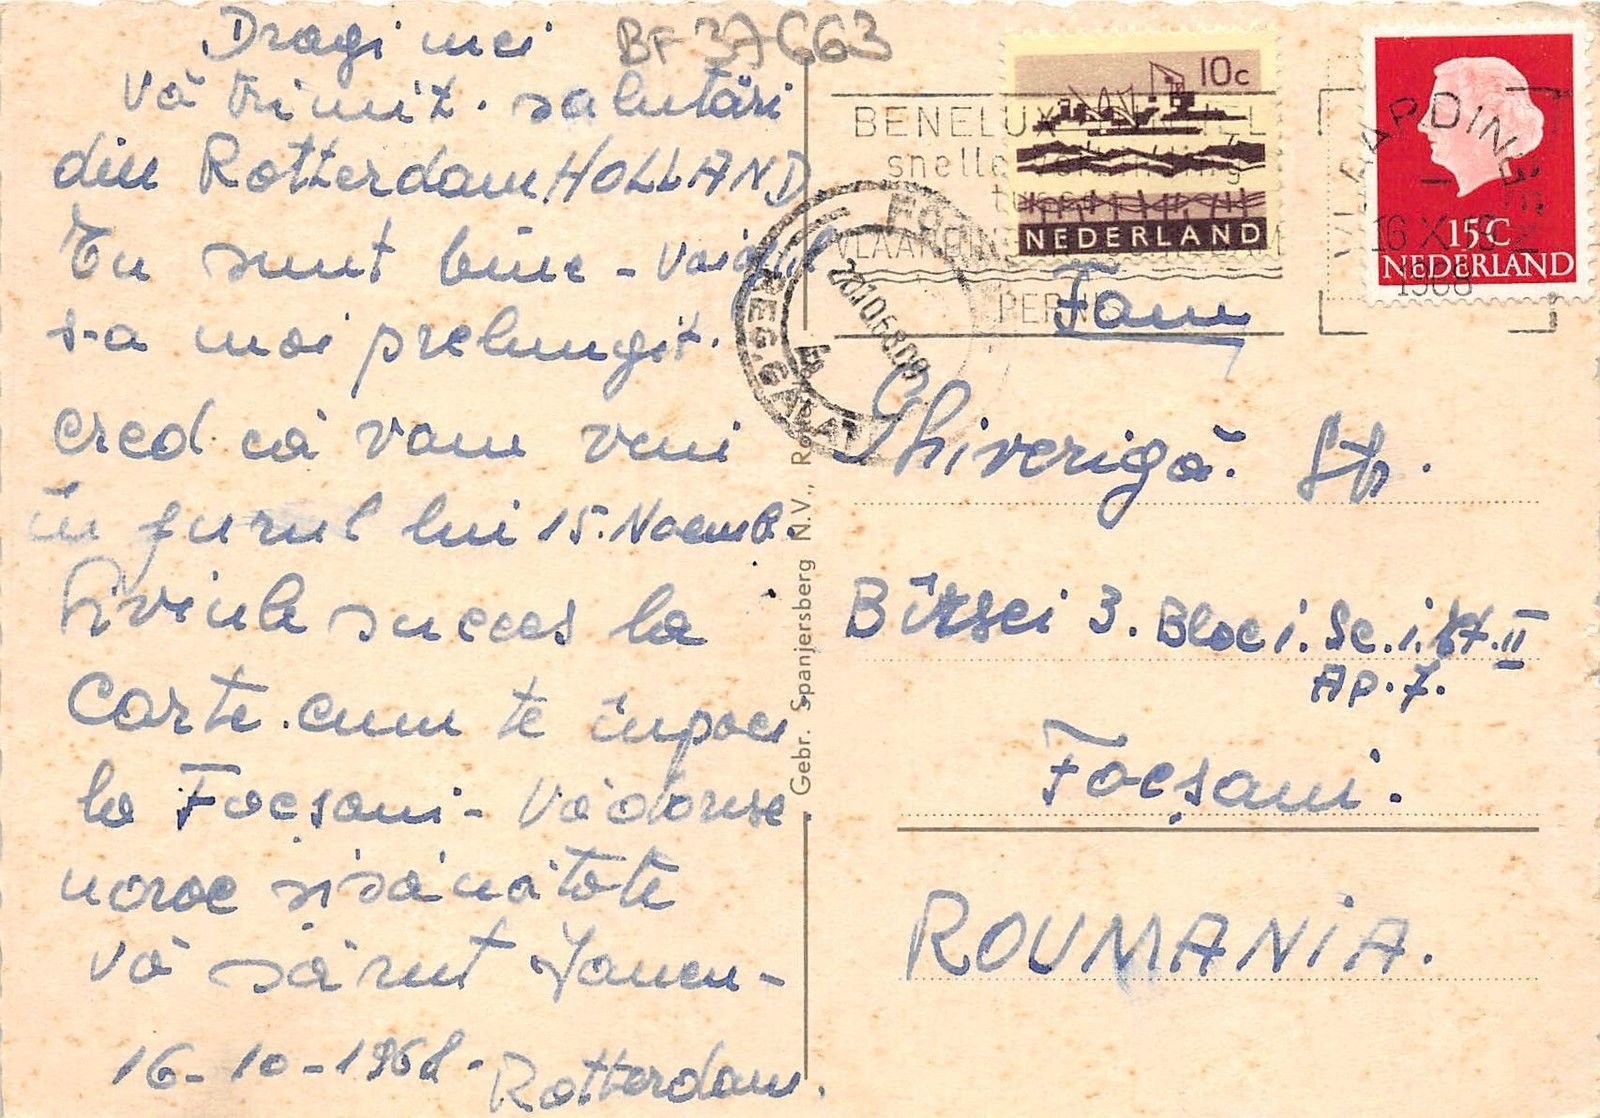 Dragi mei
BF 37663
Vă trimit. salutări
din Rotterdam HOLLAND
Eu sunt bine - voiajul
s-a mai prelungit.
cred că vom veni
în jurul lui 15. Noemb.
Liviule succes la
carte. cum te împaci
la Focșani - Vă doresc
noroc și sănătate
Vă sărut Iancu -
16-10-1968. Rotterdam.
Gebr. Spanjersberg N.V.,
10c
NEDERLAND
15C
NEDERLAND
BENELUX
snelle
VLAARDINGEN
PERNIS
VLAARDINGEN
16 X
1968
20.10.68.09
REG. GALAȚI
Fam
Ghiverigă. Str.
Bîrsei 3. Bloc i. Sc. i. et. II
Ap. 7.
Focșani.
ROUMANIA.